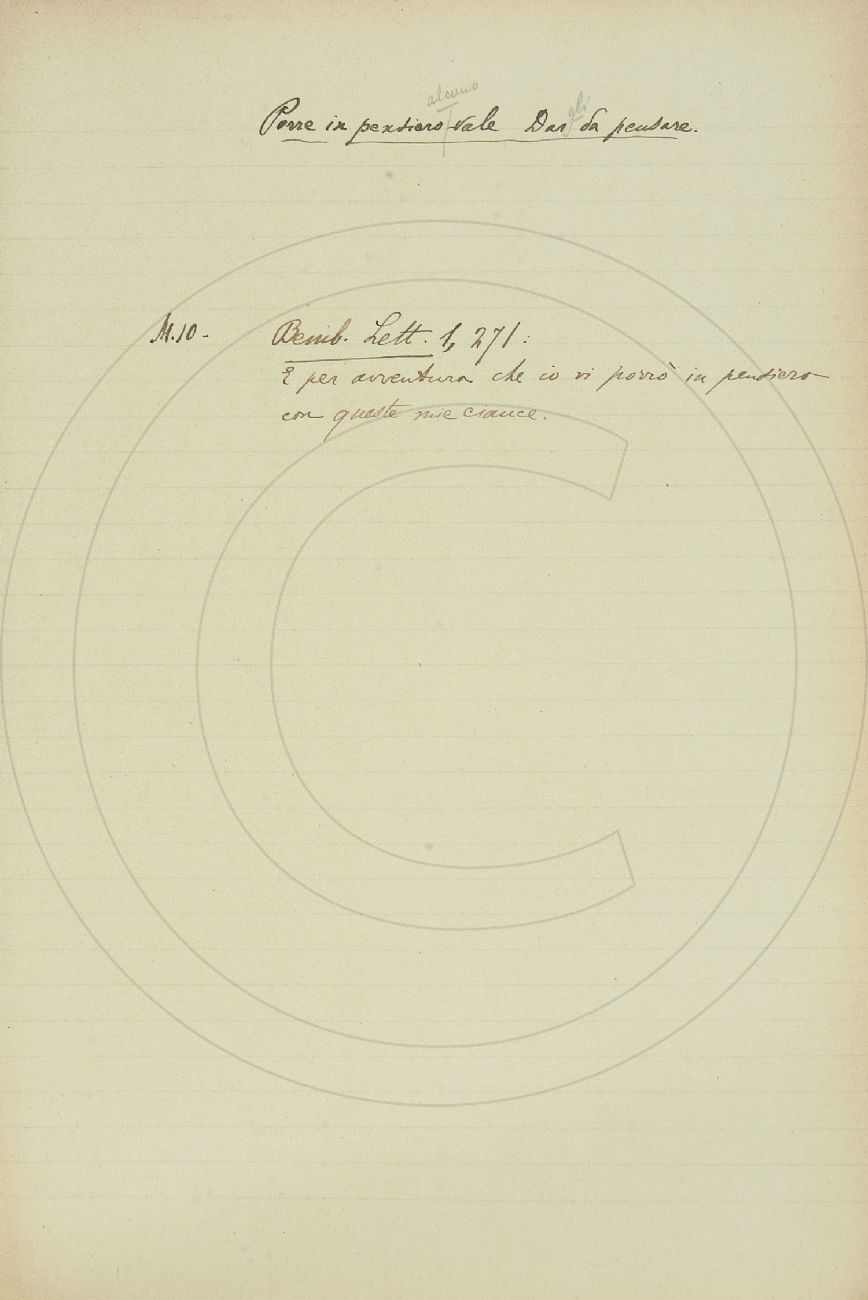 alcuno gli
Porre in pensiero vale Dar da pensare.
M.10- Bemb. Lett. 1, 271:
E per avventura che io vi porrò in pensiero
con queste mie ciance.